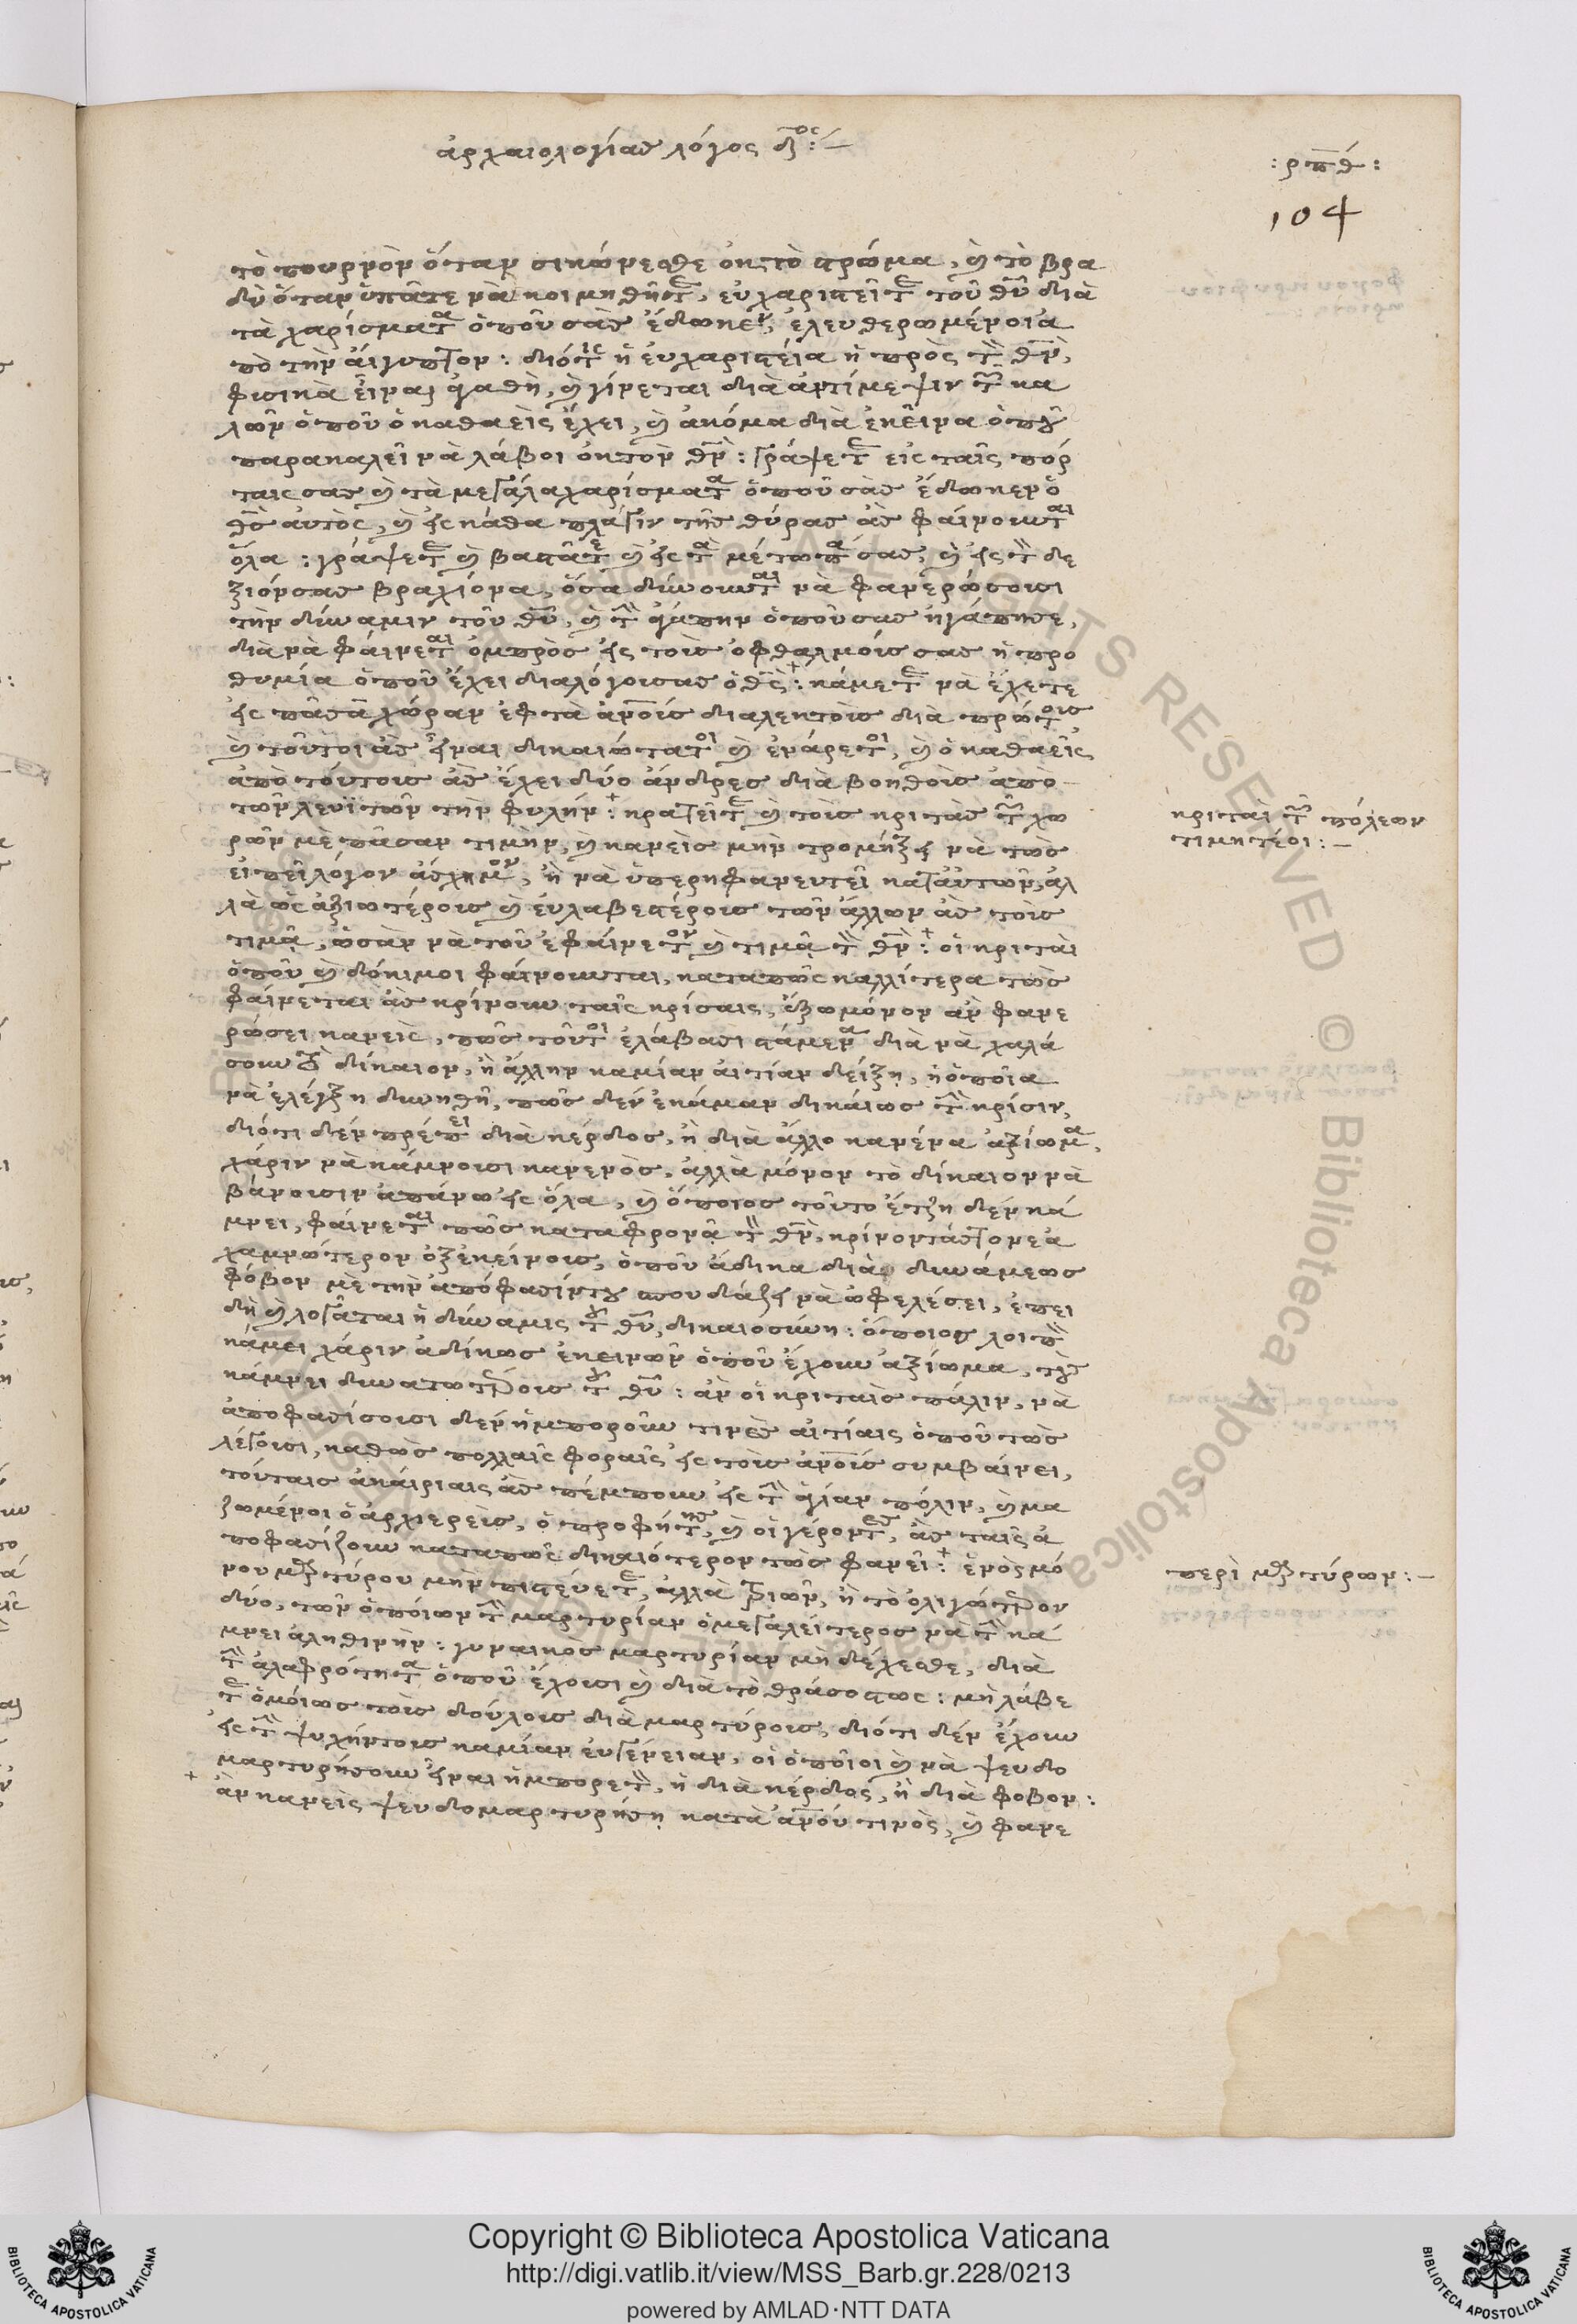 ἀρχαιολογίας λόγος δ^ος:—
:ρπθ:
104
τὸ πουρνὸν ὅταν σικώνεσθε ὀκ τὸ στρῶμα, καὶ τὸ βρα
δὺ ὅταν ὑπᾶτε νὰ κοιμηθῆτε, εὐχαριστεῖτε τοῦ θῦ διὰ
τὰ χαρίσματα ὁποῦ σᾶς ἔδωκεν, ἐλευθερωμένοι ἀ
πὸ τὴν αἴγυπτον: διότις ἡ εὐχαριστεία ἡ πρὸς τὸν θν̄,
φισικὰ εἶναι ἀγαθὴ, καὶ γίνεται διὰ ἀντίμεψιν τῶν κα
λῶν ὁποῦ ὁ καθαεὶς ἔχει, καὶ ἀκόμα διὰ ἐκεῖνα ὁποῦ
παρακαλεῖ νὰ λάβοι ὀκ τὸν θν̄: γράψετε εἰς ταῖς πόρ
ταις σας καὶ τὰ μεγάλα χαρίσματα ὁποῦ σᾶς ἔδωκεν ὁ
θς̄ αὐτὸς, καὶ εἰς κάθα πλάγιν τῆς θύρας ἂς φαίνουνται
ὅλα: γράψετε καὶ βαστᾶτε καὶ εἰς τὰ μέτωπα σας, καὶ εἰς τὸν δε
ξιόν σας βραχίονα, ὅσα δύνουνται νὰ φανερώσουσι
τὴν δύναμιν τοῦ θῦ, καὶ τὴν ἀγάπην ὁποῦ σας ἠγάπησε,
διὰ νὰ φαίνεται ὀμπρὸς εἰς τοὺς ὀφθαλμούς σας ἡ προ
θυμία ὁποῦ ἔχει διαλόγου σας ὁ θς̄: κάμετε νὰ ἔχετε
εἰς πᾶσα χώραν ἑφτὰ ἀνους διαλεκτοὺς διὰ πρώτους
καὶ τοῦτοι ἂς εἶναι δικαιώτατοι καὶ ἐνάρετοι, καὶ ὁ καθαεῖς
ἀπὸ τούτους ἂς ἔχει δύο ἄνδρες διὰ βοηθοὺς ἀπὸ
τῶν λευϊτῶν τὴν φυλήν: κρατεῖτε καὶ τοὺς κριτὰς τῶν χω
ρῶν μὲ πᾶσαν τιμὴν, καὶ κανεὶς μὴν τρομήξει νὰ τῶς
εἰπεῖ λόγον ἄσχημον, ἢ νὰ ὑπερηφανευτεῖ κατ᾽ αὐτῶν, ἀλ
λὰ ὡς ἀξιωτέρους καὶ εὐλαβεστέρους τῶν ἄλλων ἂς τοὺς
τιμᾷ, ὡσὰν νὰ τοῦ ἐφαίνετον καὶ τιμᾷ τὸν θν̄: οἱ κριταὶ
ὁποῦ καὶ δόκιμοι φαίνουνται, καταπῶς καλλίτερα τῶς
φαίνεται ἂς κρίνουν ταῖς κρίσαις, ἔξω μόνον ἂν φανε
ρώσει κανεὶς, πῶς τοῦτοι ἐλάβασι στάμενα διὰ νὰ χαλά
σουν τὸ δίκαιον, ἢ ἄλλην καμίαν αἰτίαν δείξῃ, ἡ ὁποία
νὰ ἐλέγξῃ δυνηθῆ, πῶς δὲν ἐκάμαν δικαίως τὴν κρίσιν,
διότι δὲν πρέπει διὰ κέρδος, ἢ διὰ ἄλλο κανένα ἀξίωμα,
χάριν νὰ κάμνουσι κανενὸς, ἀλλὰ μόνον τὸ δίκαιον νὰ
βάνουσιν ἀπάνω εἰς ὅλα, καὶ ὅποιος τοῦτο ἔτζη δὲν κά
μνει, φαίνεται πῶς καταφρονᾷ τὸν θν̄, κρίνοντάς τον ἐα
χαμνότερον ὀξ ἐκείνους, ὁποῦ ἄδικα διὰ δυνάμεως
φόβον μὲ τὴν ἀπόφασίν του σπουδάξει νὰ ὠφελέσει, ἐπει
δὴ καὶ λογᾶται ἡ δύναμις τοῦ θῦ, δικαιοσύνη: ὅποιος λοιπὸν
κάμει χάριν ἀδίκως ἐκεινῶν ὁποῦ ἔχουν ἀξίωμα, τοὺς
κάμνει δυνατωτέρους τοῦ θῦ: ἂν οἱ κριταὶς πάλιν, νὰ
ἀποφασίσουσι δὲν ἡμποροῦν τινὲς αἰτίαις ὁποῦ τῶς
λέγουσι, καθὼς πολλαῖς φοραῖς εἰς τοὺς ἀνους συμβαίνει,
τούταις ἀκαίριαις ἂς πέμπουν εἰς τὴν ἁγίαν πόλιν, καὶ μα
ζωμένοι ὁ ἀρχιερεὺς, ὁ προφήτης, καὶ οἱ γέροντες, ἂς ταῖς ἀ
ποφασίζουν καταπῶς δικαιότερον τῶς φανεῖ: ἑνὸς μό
νου μάρτύρου μὴν πιστεύετε, ἀλλὰ τριῶν, ἢ τὸ ὀλιγώτερον
δύο, τῶν ὁποίων τὴν μαρτυρίαν ὁ μεγαλείτερος νὰ τὴν κά
μνει ἀληθινὴν: γυναικὸς μαρτυρίαν μὴ δέχεσθε, διὰ
τὴν ἀλαφρότητα ὁποῦ ἔχουσι καὶ διὰ τὸ θράσος τως: μὴ λάβε
τε ὁμοίως τοὺς δούλους διὰ μαρτύρους, διότι δὲν ἔχουν
εἰς τὴν ψυχήν τους καμίαν εὐγένειαν, οἱ ὁποῖοι καὶ νὰ ψευδο
μαρτυρήσουν εἶναι ἡμπορετὸν, ἢ διὰ κέρδος, ἢ διὰ φόβον:
ἂν κανεὶς ψευδομαρτυρήσῃ κατὰ ἀνοῦ τινὸς, καὶ φανε
κριταὶ τῶν πόλεων
τιμητέοι:—
περὶ μαρτύρων:—
Copyright © Biblioteca Apostolica Vaticana
http://digi.vatlib.it/view/MSS_Barb.gr.228/0213
powered by AMLAD·NTT DATA
BIBLIOTECA APOSTOLICA VATICANA
BIBLIOTECA APOSTOLICA VATICANA